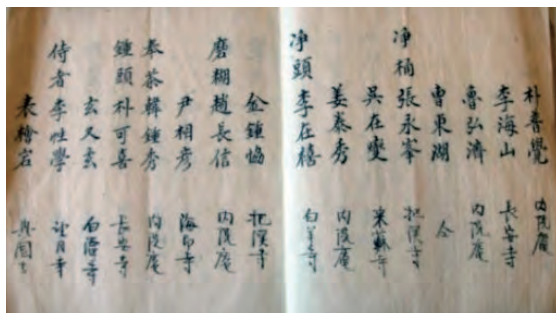 朴普覺 內院庵
李海山 長安寺
魯弘濟 內院庵
曹東湖 仝
净桶 張永峯 把溪寺
吳在燮 來蘇寺
姜泰秀 內院庵
净頭 李在禧 白羊寺
金鍾協 把溪寺
磨糊 趙長信 內院庵
尹相彦 海印寺
奉茶 韓鍾秀 內院庵
鍾頭 朴可喜 長安寺
玄又玄 白潭寺
侍者 李性學 望月寺
檜岩